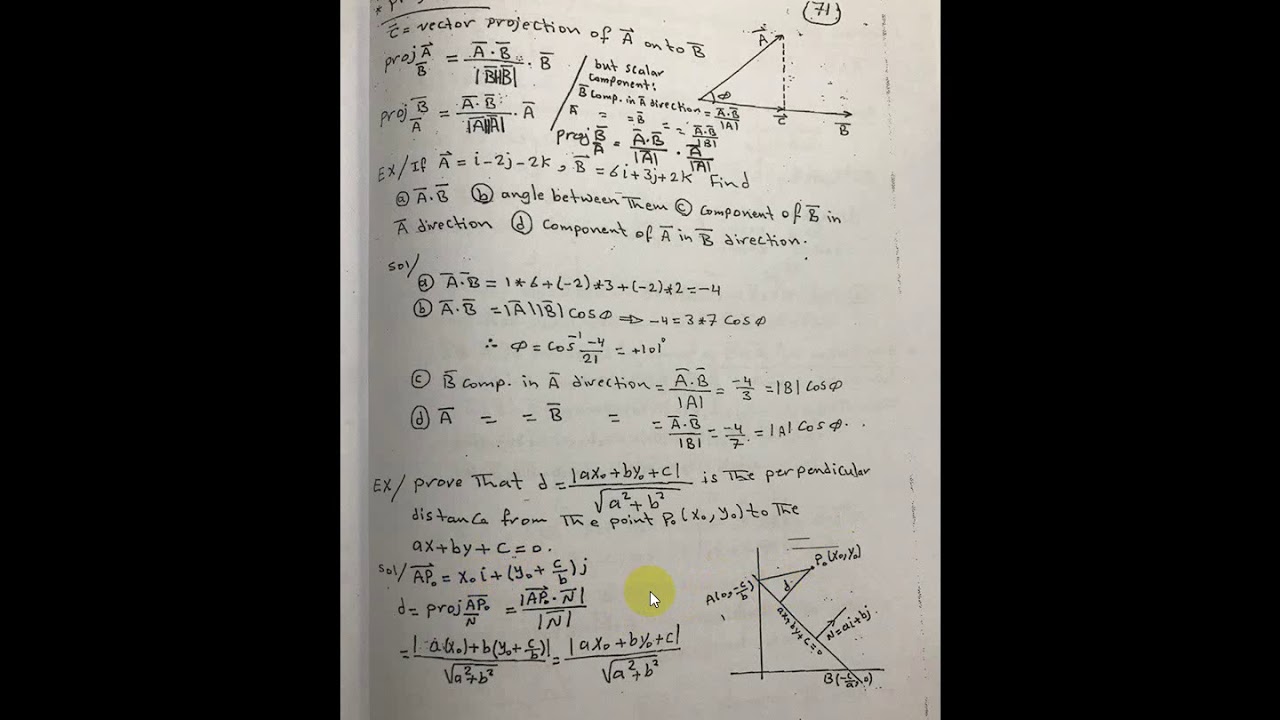 (71)
C⃗ = vector projection of A⃗ onto B⃗
proj A⃗ / B̄ = Ā·B̄ / |B̄||B̄| · B̄
but scalar
component:
B̄ comp. in Ā direction = Ā·B̄ / |A|
Ā = = B̄ = = Ā·B̄ / |B|
proj B̄ / Ā = Ā·B̄ / |Ā||Ā| · Ā
proj B̄ / Ā = Ā·B̄ / |Ā| · Ā / |Ā|
A⃗
φ
C⃗
B̄
EX/ If A⃗ = i-2j-2k, B̄ = 6i+3j+2k Find
ⓐ Ā·B̄ ⓑ angle between Them ⓒ component of B̄ in
Ā direction ⓓ component of Ā in B̄ direction.
Sol/
ⓐ Ā·B̄ = 1*6+(-2)*3+(-2)*2=-4
ⓑ Ā·B̄ = |Ā||B̄| cosφ ⇒ -4=3*7 cosφ
∴ φ = cos⁻¹ -4/21 = +101°
ⓒ B̄ comp. in Ā direction = Ā·B̄ / |A| = -4/3 = |B| cosφ
ⓓ Ā = = B̄ = = Ā·B̄ / |B| = -4/7 = |A| cosφ.
EX/ prove That d = |ax₀+by₀+c| / √a²+b² is The perpendicular
distance from The point P₀(x₀,y₀) to The
ax+by+c=0.
sol/ AP₀⃗ = x₀i+(y₀+c/b)j
d = proj AP₀⃗ / N̄ = |AP₀⃗·N̄| / |N̄|
= |a(x₀)+b(y₀+c/b)| / √a²+b² = |ax₀+by₀+c| / √a²+b²
P₀(x₀,y₀)
A(0,-c/b)
d
ax+by+c=0
N=ai+bj
B(-c/a,0)